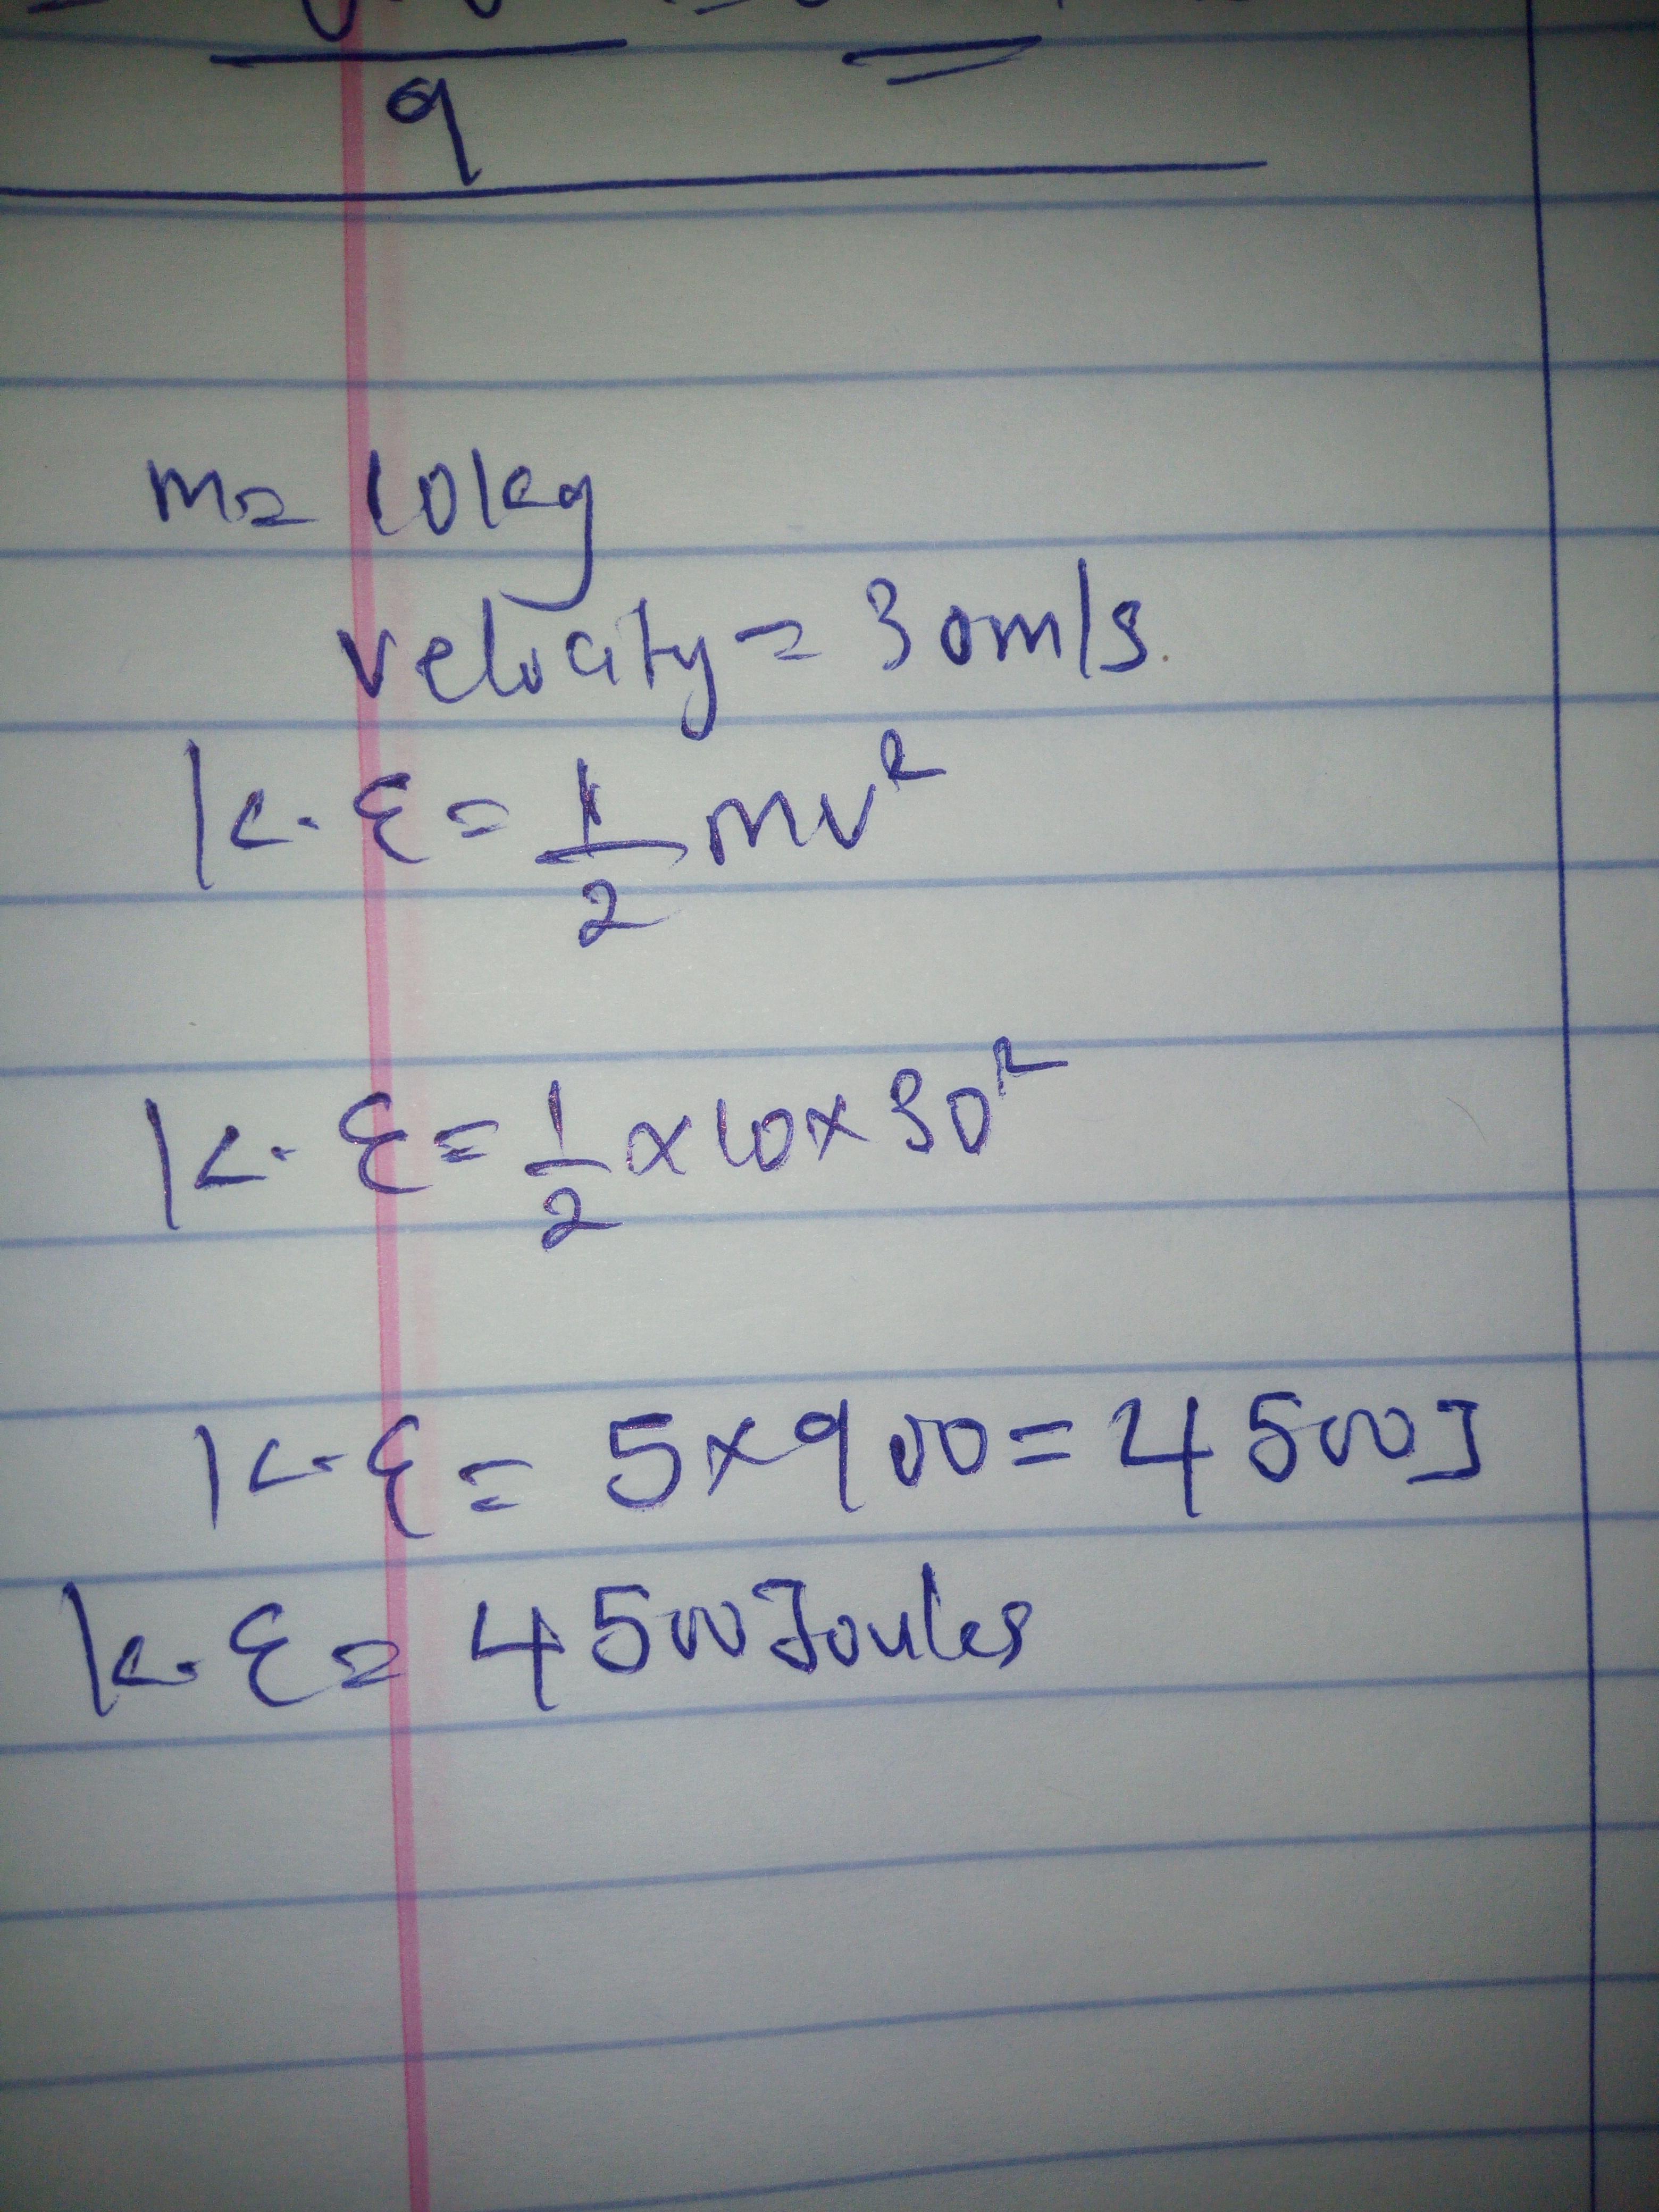 9
m= 10kg
velocity = 30m/s.
K.E = 1/2 mv²
K.E = 1/2 x 10 x 30²
K.E = 5 x 900 = 4500J
K.E = 4500 Joules